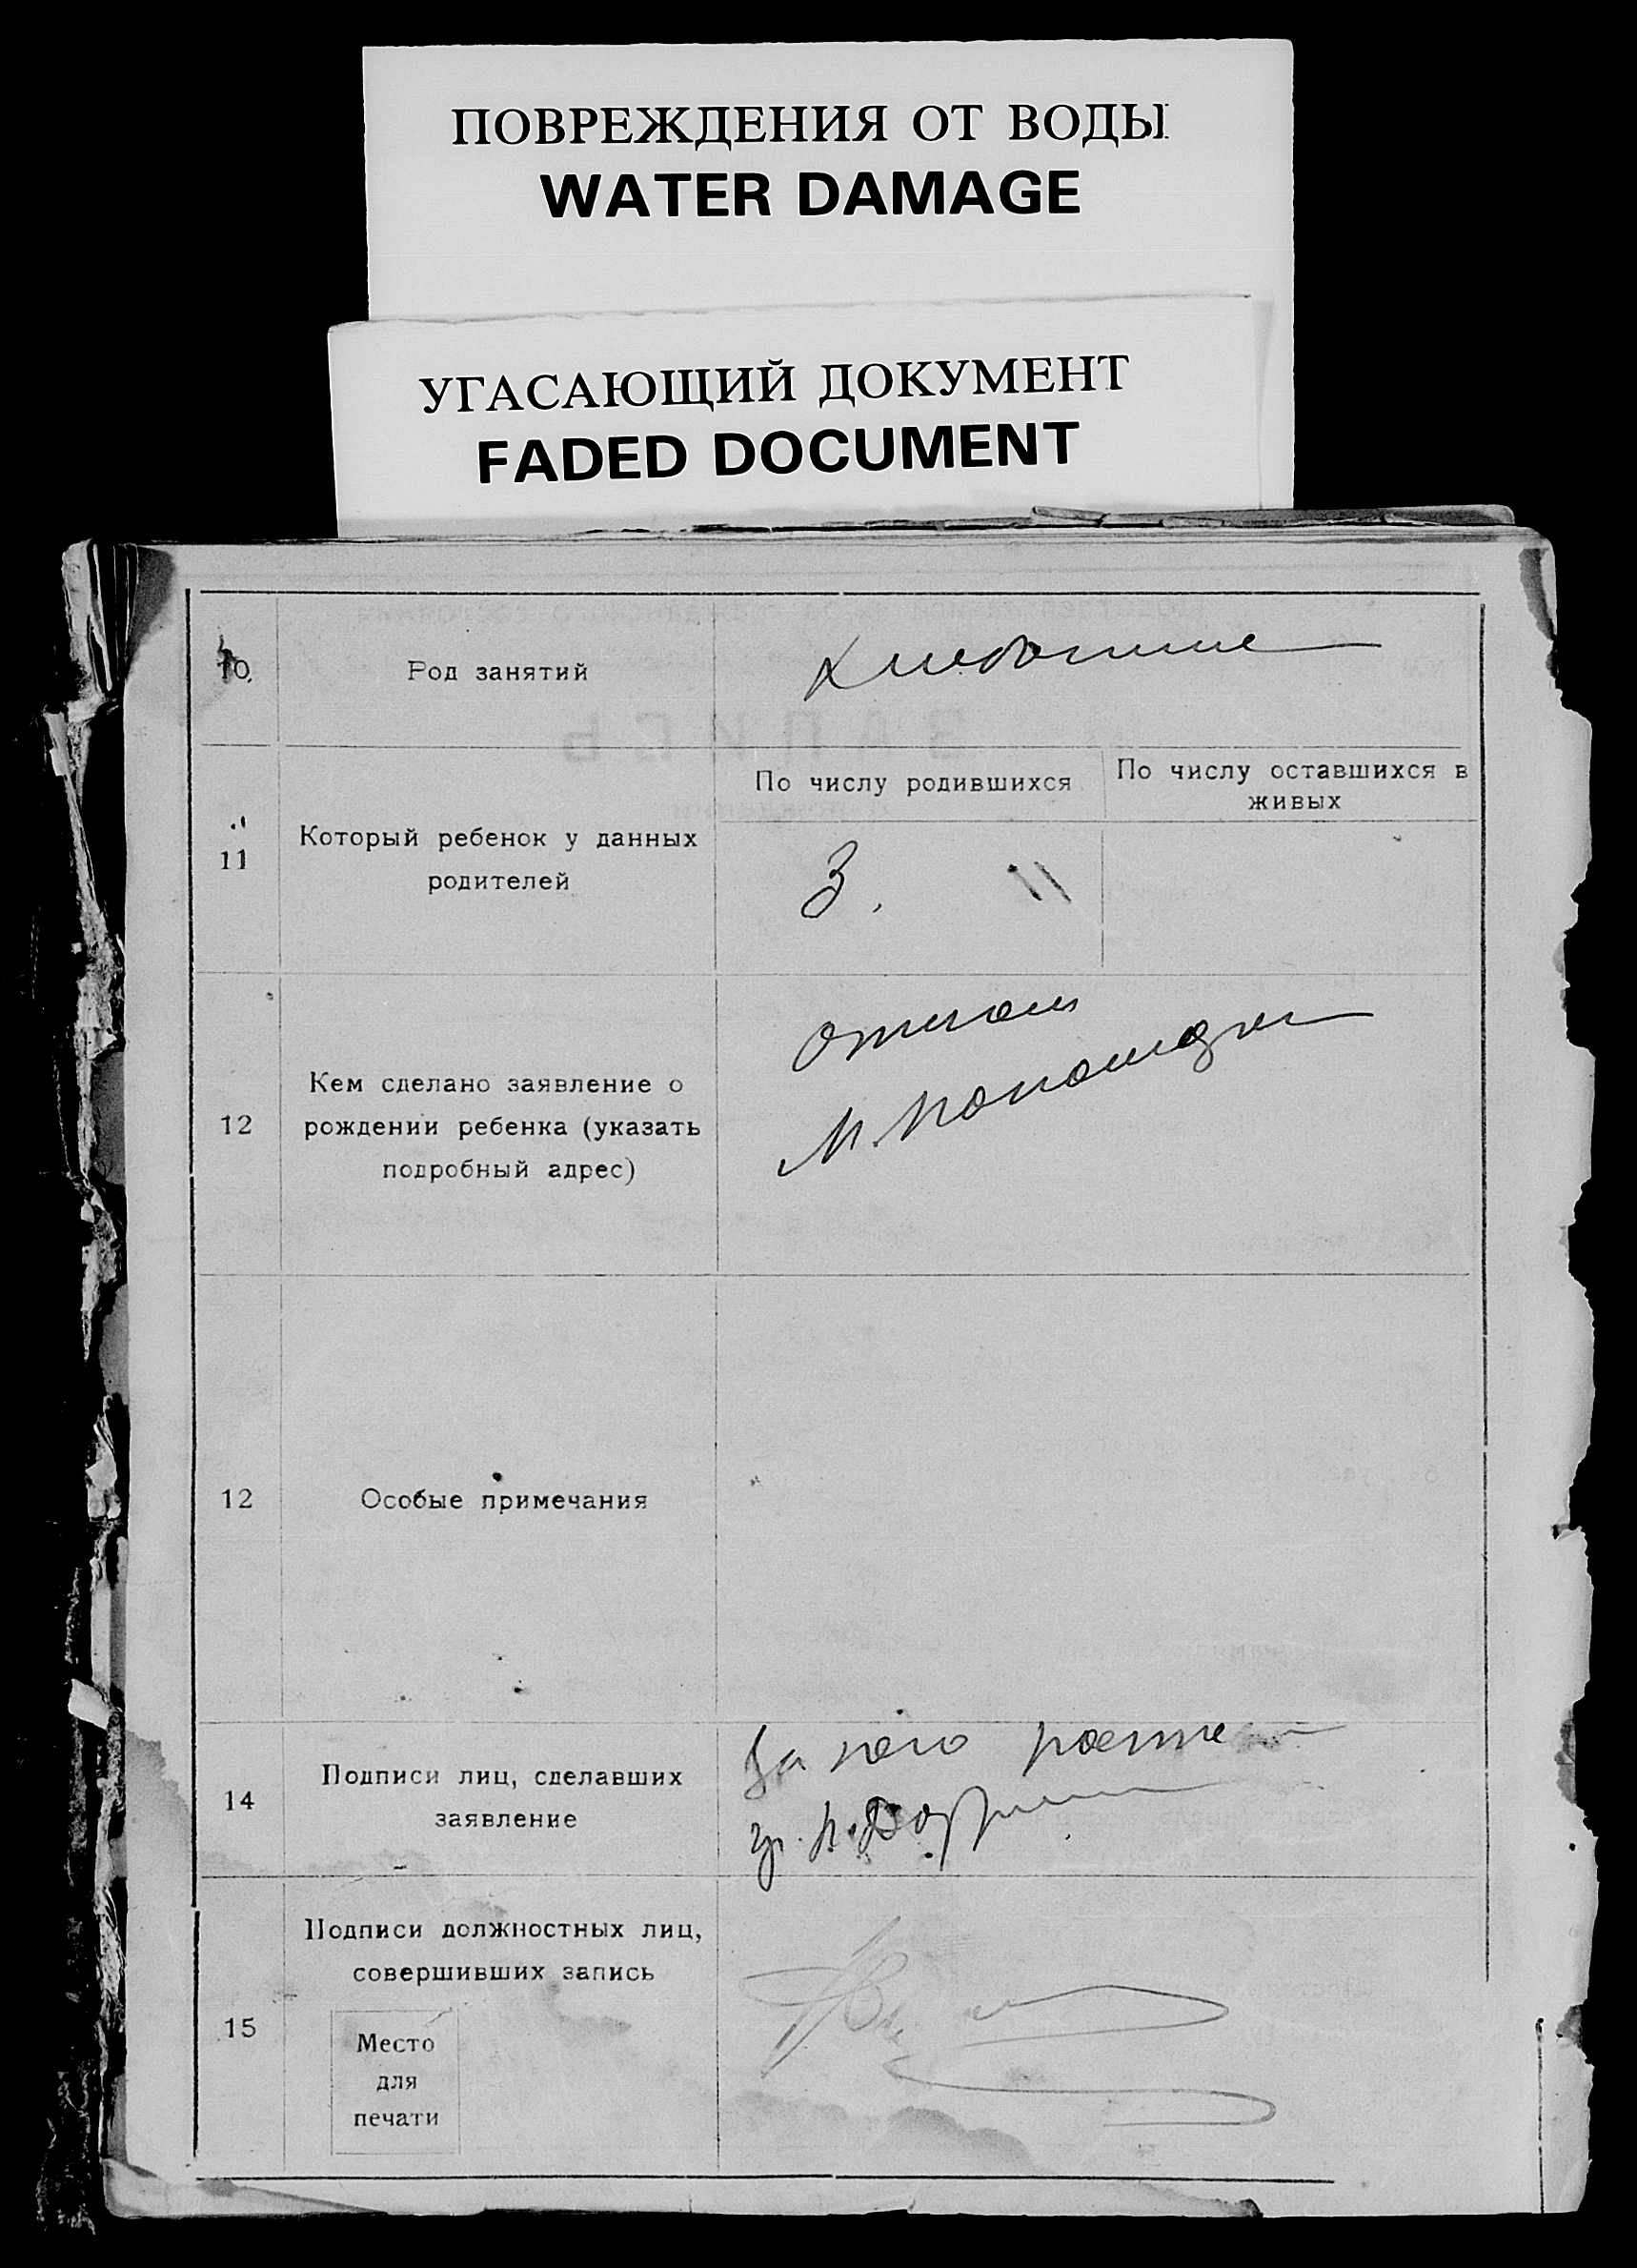 ПОВРЕЖДЕНИЯ ОТ ВОДЫ
WATER DAMAGE
УГАСАЮЩИЙ ДОКУМЕНТ
FADED DOCUMENT
10. Род занятий
По числу родившихся
По числу оставшихся в
живых
11
Который ребенок у данных
родителей
3.
Отцом
12
Кем сделано заявление о
рождении ребенка (указать
подробный адрес)
12
Особые примечания
За него
14
Подписи лиц, сделавших
заявление
гр.
15
Подписи должностных лиц,
совершивших запись
Место
для
печати